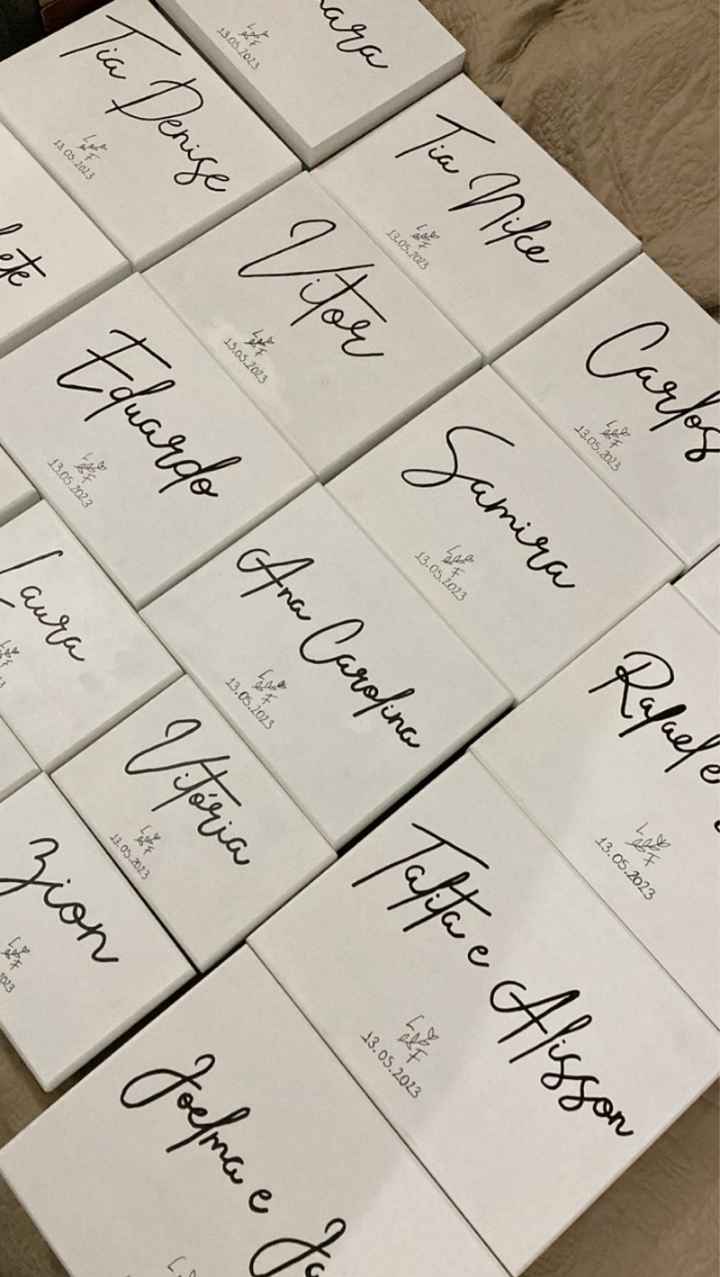 Tia Denise
13.05.2023
13.05.2023
Tia Nike
13.05.2023
Vitor
13.05.2023
Carlos
13.05.2023
Eduardo
13.05.2023
Samira
13.05.2023
Laura
Ana Carolina
13.05.2023
Rafael e
13.05.2023
Vitória
13.05.2023
Zion
Talita e Alisson
L F
13.05.2023
Joelma e